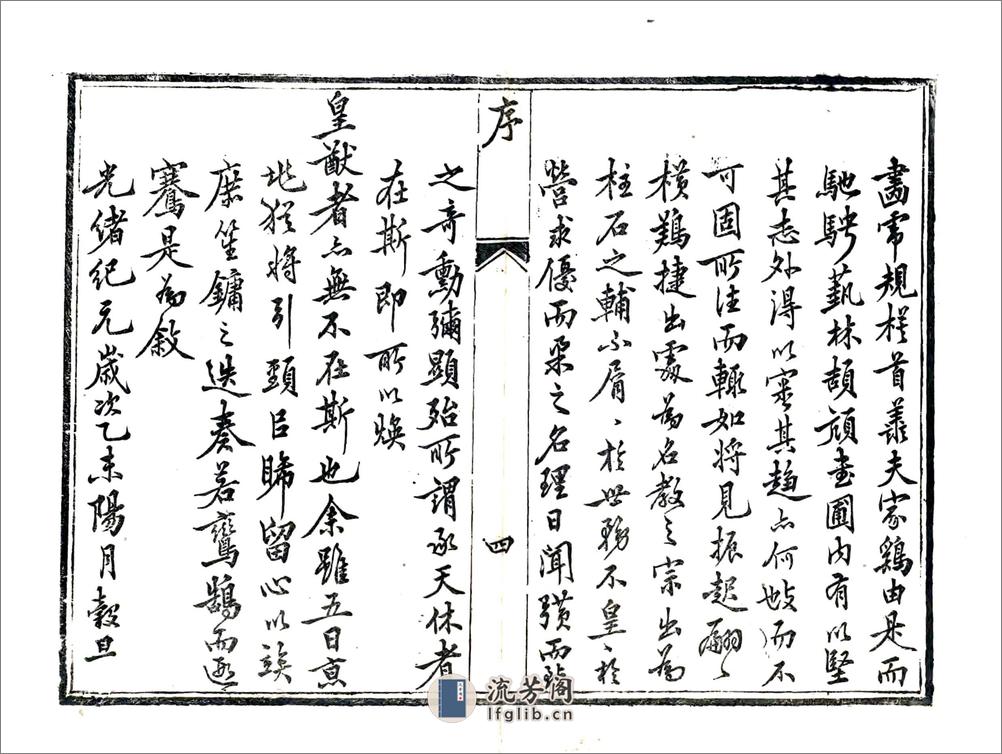 畫甯規橅首羨夫家鷄由是而
馳騁藝林頡頏書圃內有以堅
其志外得以寧其趨亦何攷而不
可固所注而輒如將見振起翩〻
橫鷄捷出處爲名教之宗出爲
柱石之輔不屑〻於世務不皇〻於
營求優而柔之名理日闻曠而
序
四
之奇勳彌顯殆所謂承天休者
在斯即所以煥
皇猷者亦無不在斯也余雖五日京
兆猶將引頸巨睎留心以竢
庶笙鏞之迭奏若鸞鵠而遞
騫是為敘
光緒紀元歲次乙未陽月穀旦
流芳閣
lfglib.cn